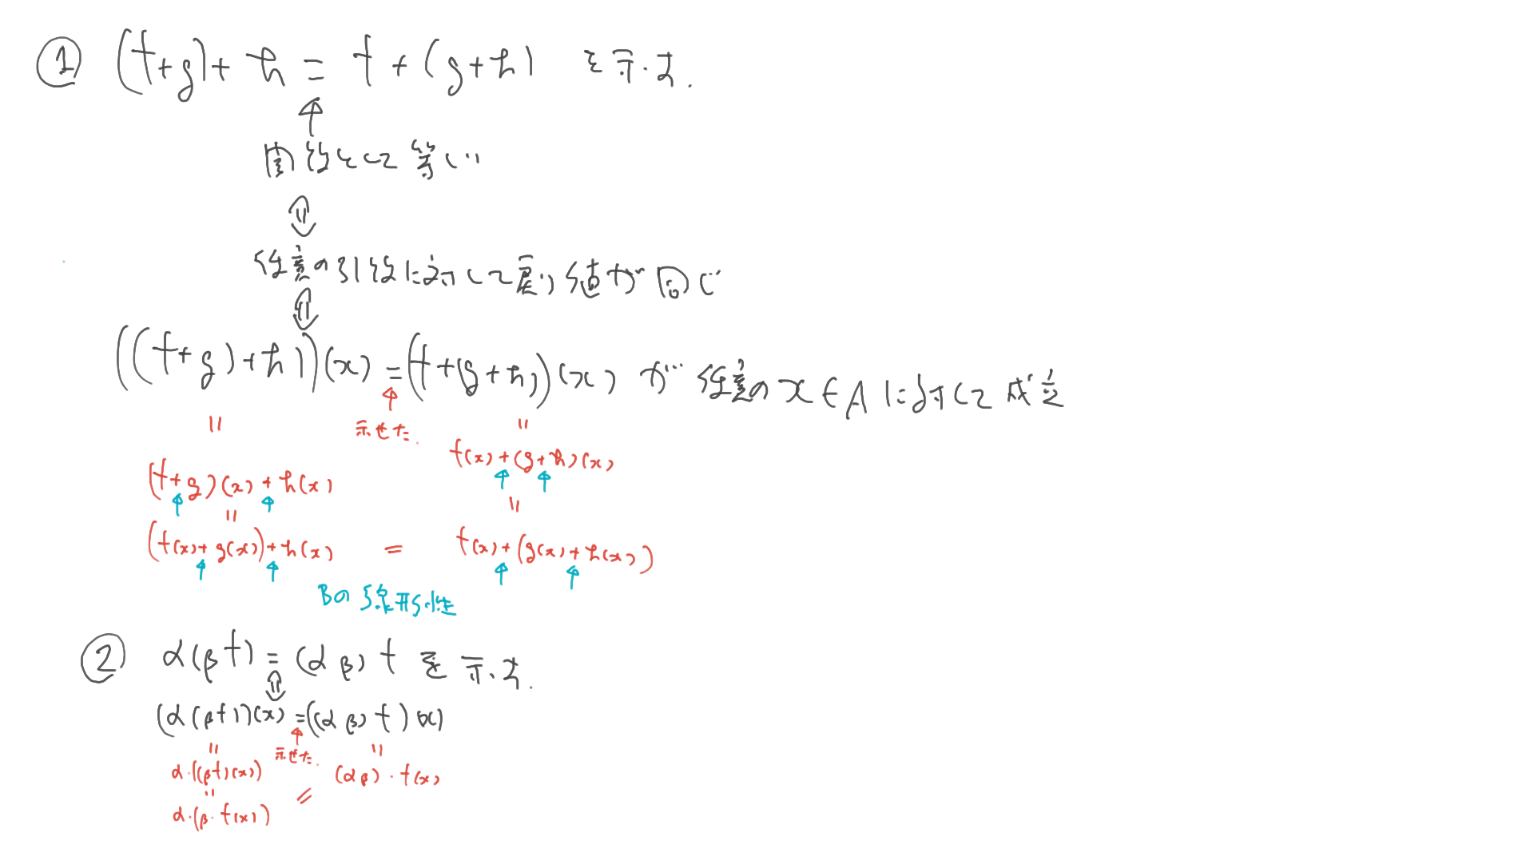 ① (f+g)+h = f+(g+h) を示す.
↑
関数として等しい
⇕
任意の引数に対して戻り値が同じ
⇕
((f+g)+h)(x) = (f+(g+h))(x) が 任意の x∈A に対して成立
= ↑ =
示せた.
(f+g)(x)+h(x) f(x)+(g+h)(x)
↑ ↑ ↑ ↑
= =
(f(x)+g(x))+h(x) = f(x)+(g(x)+h(x))
↑ ↑ ↑ ↑
Bの線形性
② α(βf) = (αβ)f を示す.
⇕
(α(βf))(x) = ((αβ)f)(x)
= ↑ 示せた. =
α·((βf)(x)) (αβ)·f(x)
= =
α·(β·f(x))